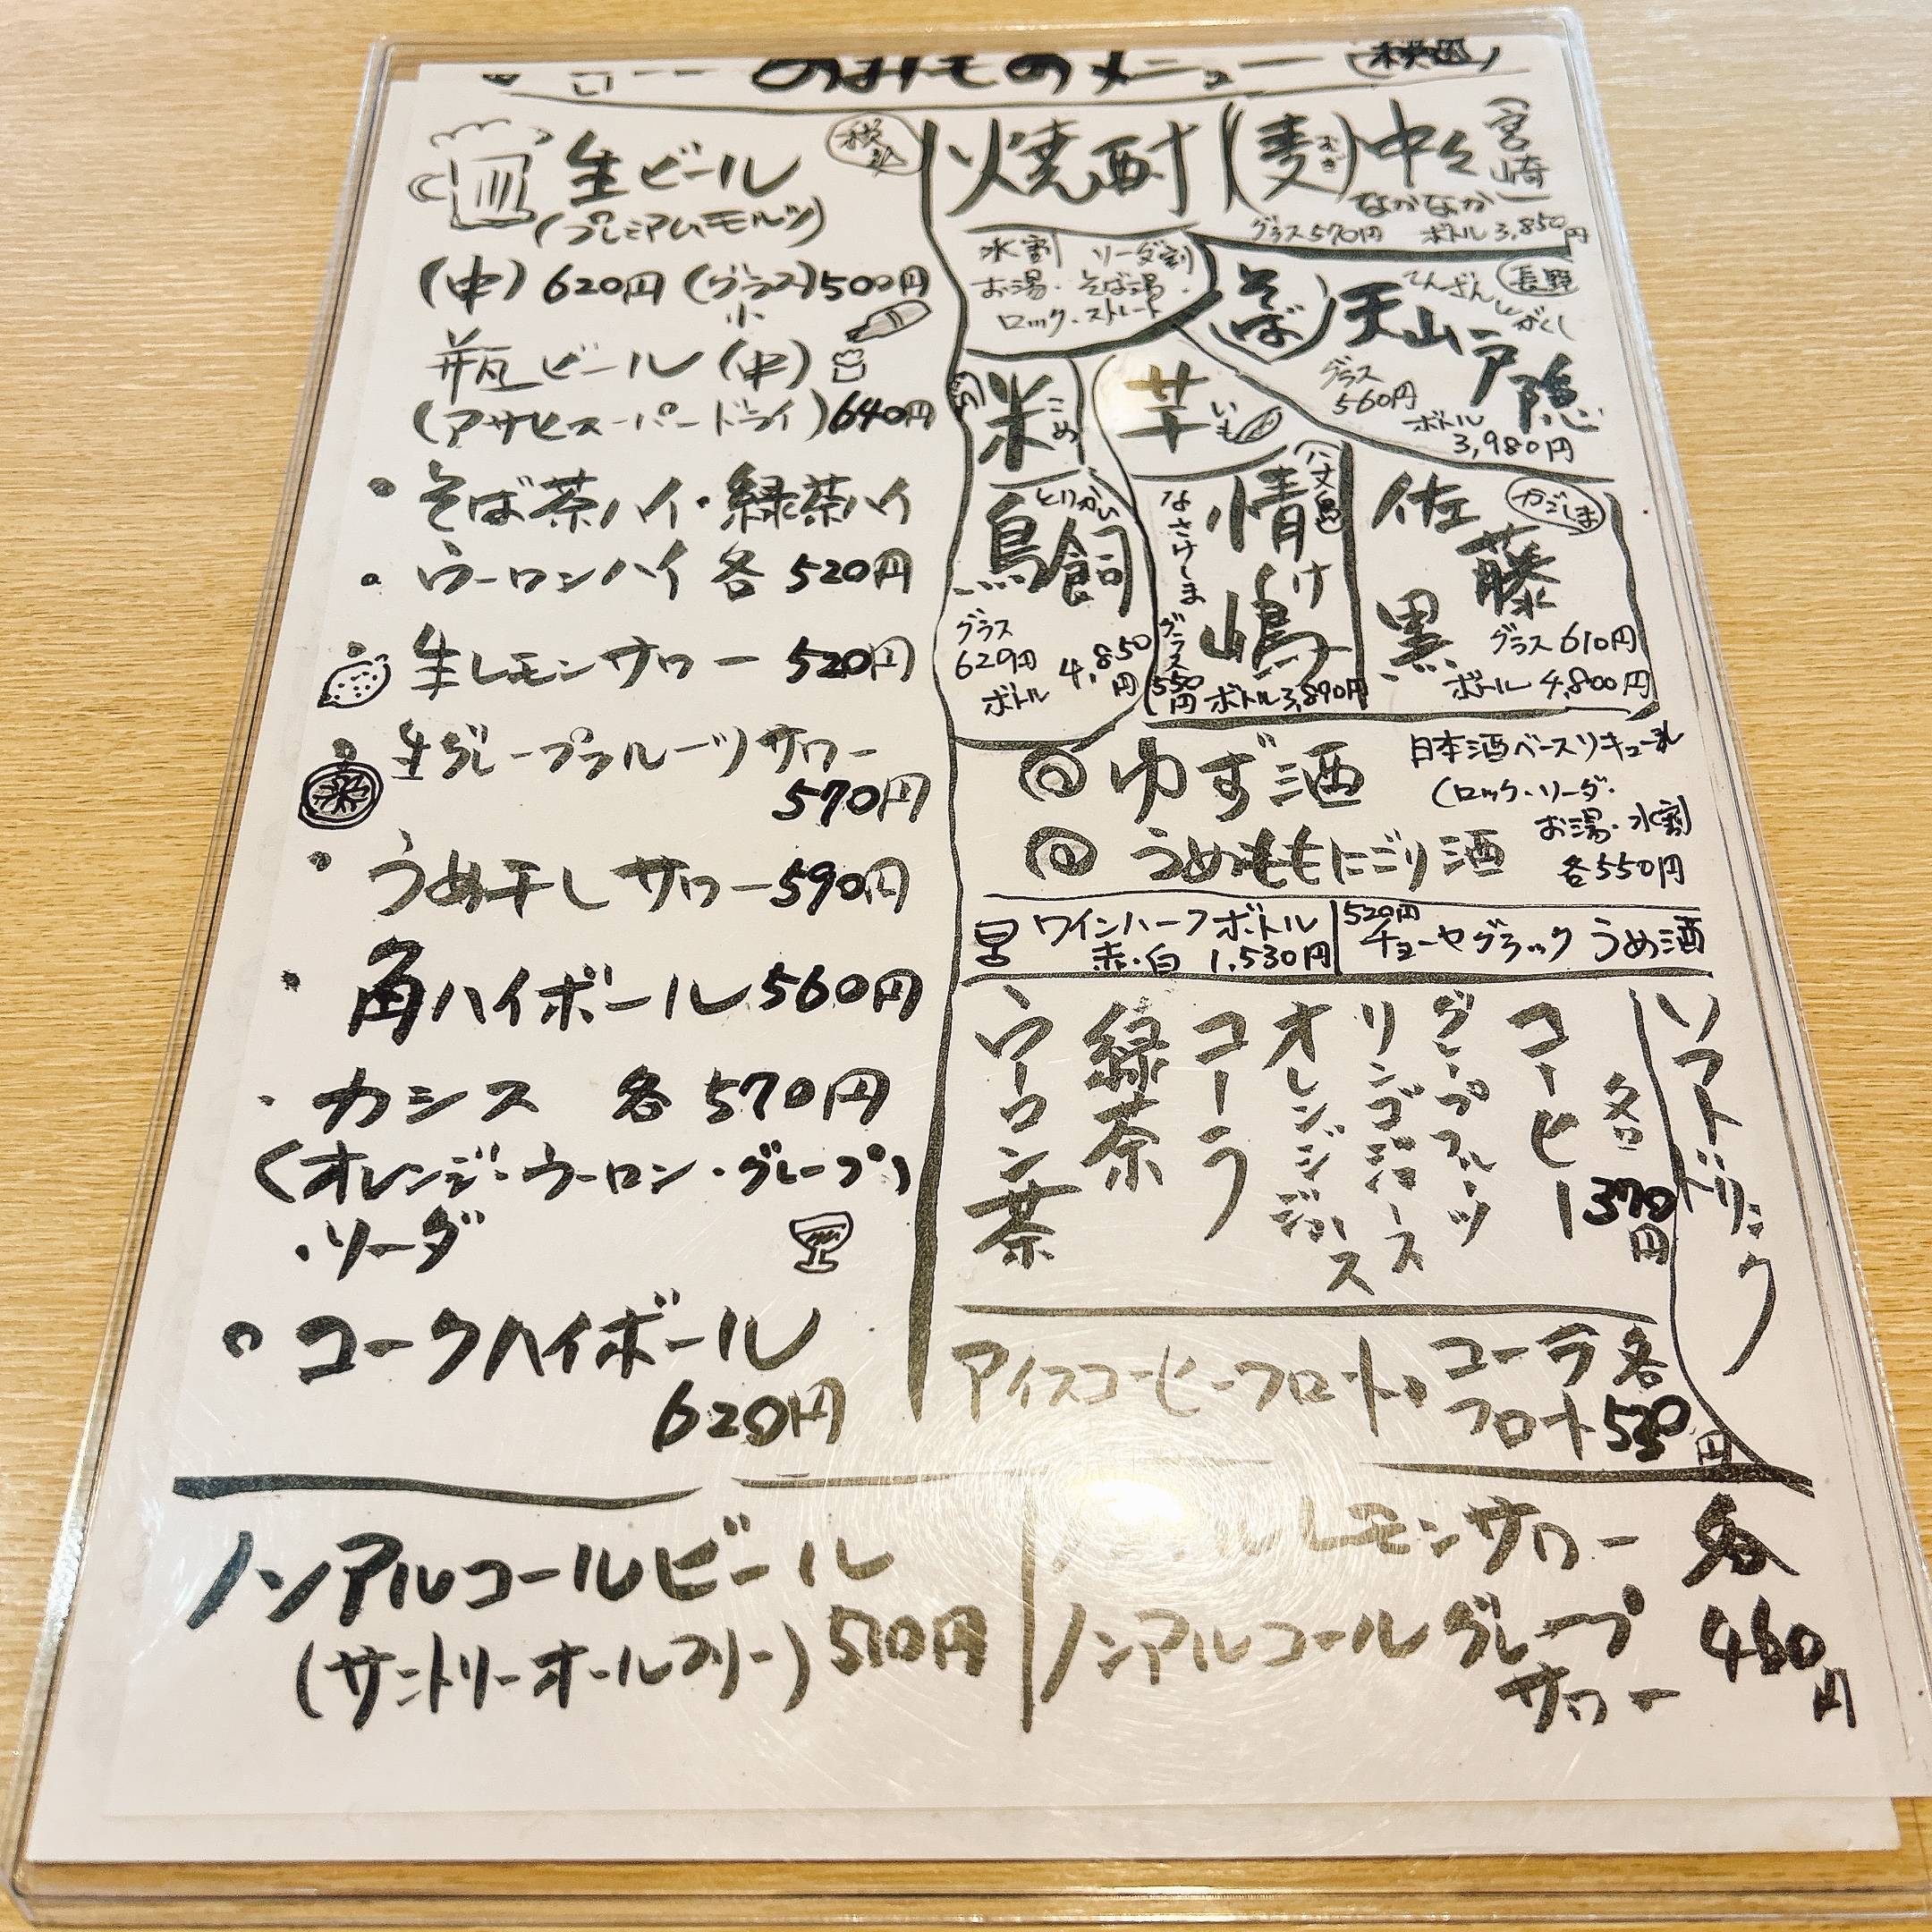 のみものメニュー
生ビール
税込
(プレミアムモルツ)
(中)620円(グラス)500円
小
瓶ビール(中)
(アサヒスーパードライ)640円
・そば茶ハイ・緑茶ハイ
・ウーロンハイ 各 520円
生レモンサワー 520円
生グレープフルーツサワー
570円
・うめ干しサワー590円
・角ハイボール560円
・カシス 各570円
(オレンジ・ウーロン・グレープ)
・ソーダ
○コークハイボール
620円
焼酎
水割 ソーダ割
お湯・そば湯・
ロック・ストレート
(麦)中々(宮崎)
むぎ
なかなか
グラス570円 ボトル3,850円
(そば)天山戸隠
てんざんとがくし
長野
グラス
560円
ボトル
3,980円
米
こめ
鳥飼
とりかい
グラス
620円
ボトル 4,850円
芋
いも
情け嶋
(八丈島)
なさけしま
グラス550円 ボトル3,890円
佐藤
黒
かごしま
グラス610円
ボトル4,800円
◎ゆず酒
◎うめももにごり酒
日本酒ベースリキュール
(ロック・ソーダ・
お湯・水割
各550円
ワインハーフボトル
赤・白 1,530円
520円
チョーヤブラック うめ酒
ソフトドリンク
各370円
コーヒー
グレープフルーツ
リンゴジュース
オレンジジュース
コーラ
緑茶
ウーロン茶
アイスコーヒーフロート・コーラ
フロート
各
530円
ノンアルコールビール
(サントリーオールフリー)510円
レモンサワー
ノンアルコールグレープ
サワー
各
460円